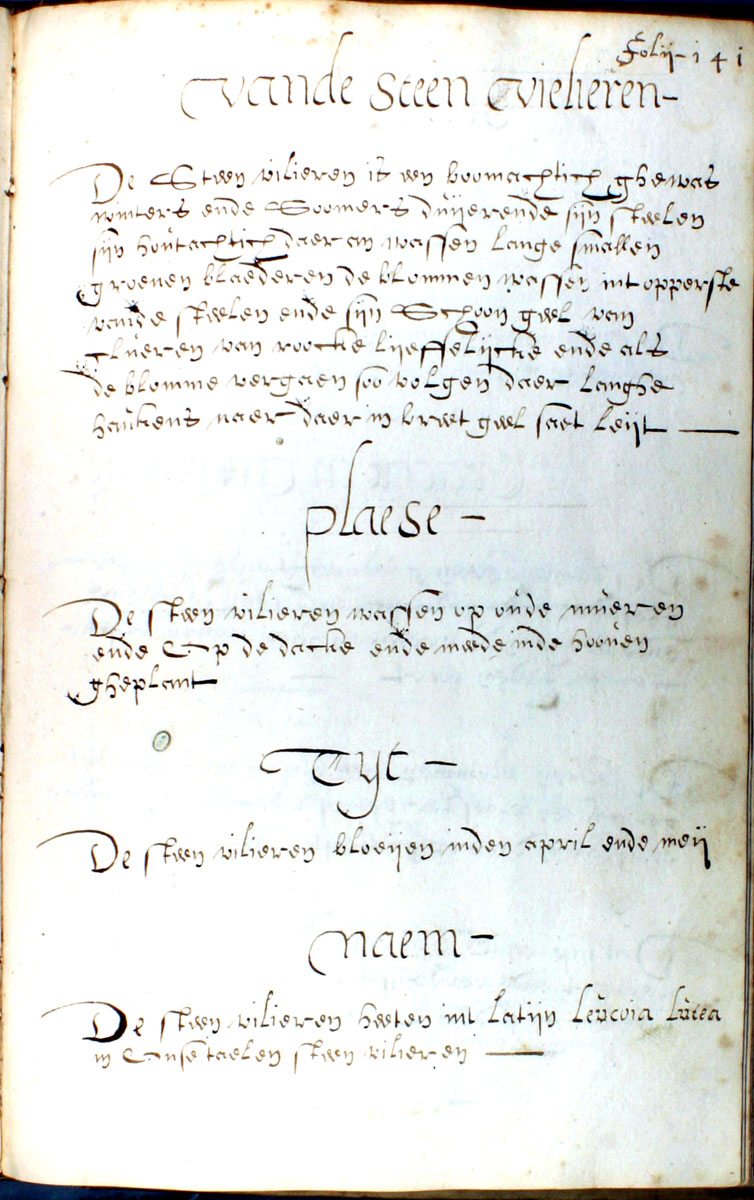 Folij 141
vande Steen vielieren
De Steen vilieren is een boomachtich ghewas
winters ende Soomers duijerende sijn steelen
sijn houtachtich daer an wassen lange smallen
groenen blaederen de blommen wassen int opperste
vande steelen ende sijn Schoon geel van
clueren van roocke lijeffelijcke ende als
de blomme vergaen soo volgen daer langhe
haukens naer daer in breet geel saet leijt
plaese
De steen vilieren wassen op oude mueren
ende Op de dacke ende mede inde hoouen
gheplant
Tyt
De steen vilieren bloeijen inden april ende meij
naem
De steen vilieren heeten int Latijn Leucoia Lutea
in Onse taelen steen vilieren